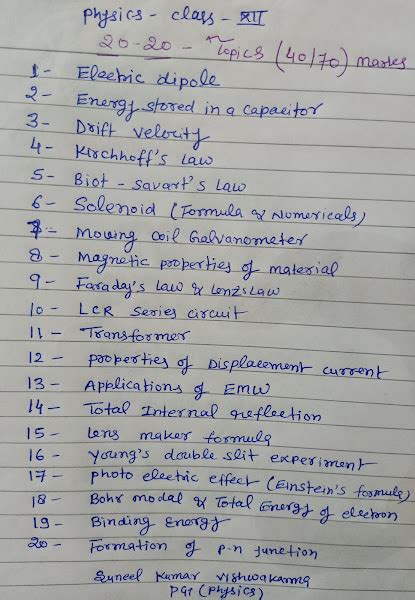 Physics - class - XII
20-20 - Topics (40/70) marks
1- Electric dipole
2- Energy stored in a capacitor
3- Drift velocity
4- Kirchhoff's Law
5- Biot - Savart's Law
6- Solenoid (Formula & Numericals)
7- Moving coil Galvanometer
8- Magnetic properties of material
9- Faraday's Law & Lenz's Law
10- LCR Series circuit
11- Transformer
12- properties of Displacement current
13- Applications of EMW
14- Total Internal reflection
15- Lens maker formula
16- Young's double slit experiment
17- photo electric effect (Einstein's formula)
18- Bohr modal & Total Energy of electron
19- Binding Energy
20- Formation of p-n junction
Suneel Kumar Vishwakarma
PGT (Physics)